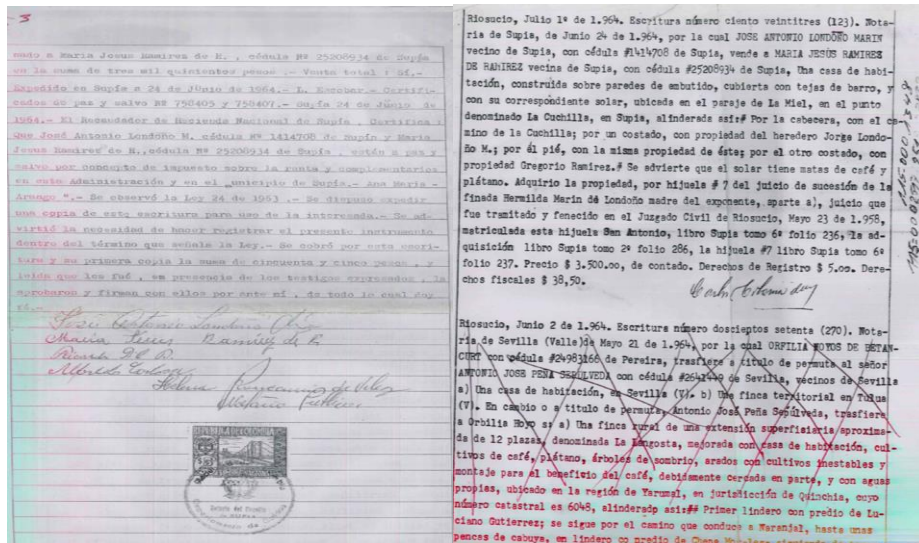 - 3
mado a Maria Jesus Ramirez de R. , cédula Nº 25208934 de Supía
en la suma de tres mil quinientos pesos .- Venta total : Sí.-
Expedido en Supía a 24 de Junio de 1964.- L. Escobar.- Certifi-
cados de paz y salvo Nº 758405 y 758407.- Supía 24 de Junio de
1964.- El Recaudador de Hacienda Nacional de Supía , Certifica :
Que José Antonio Londoño M. cédula Nº 1414708 de Supía y Maria
Jesus Ramirez de R.,cédula Nº 25208934 de Supía , están a paz y
salvo por concepto de impuesto sobre la renta y complementarios
en esta Administración y en el unicipio de Supía.- Ana Maria -
Arango ".- Se observó la Ley 24 de 1963 .- Se dispuso expedir
una copia de esta escritura para uso de la interesada.- Se ad-
virtió la necesidad de hacer registrar el presente instrumento
dentro del término que señala la Ley.- Se cobró por esta escri-
tura y su primera copia la suma de cincuenta y cinco pesos , y
leída que les fué , en presencia de los testigos expresados , la
aprobaron y firman con ellos por ante mí , de todo lo cual doy
fé.-
José Antonio Londoño
Maria Jesus Ramirez de R
Ricardo
Alfredo
Helena de
REPUBLICA DE COLOMBIA
Riosucio, Julio 1º de 1.964. Escritura número ciento veintitres (123). Nota-
ria de Supia, de Junio 24 de 1.964, por la cual JOSE ANTONIO LONDOÑO MARIN
vecino de Supia, con cédula #1414708 de Supia, vende a MARIA JESÚS RAMIRES
DE RAMIREZ vecina de Supia, con cédula #25208934 de Supia, Una casa de habi-
tación, construida sobre paredes de embutido, cubierta con tejas de barro, y
con su correspondiente solar, ubicada en el paraje de La Miel, en el punto
denominado La Cuchilla, en Supia, alinderada asi:# Por la cabecera, con el ca-
mino de la Cuchilla; por un costado, con propiedad del heredero Jorge Londo-
ño M.; por él pié, con la misma propiedad de éste; por el otro costado, con
propiedad Gregorio Ramirez.# Se advierte que el solar tiene matas de café y
plátano. Adquirio la propiedad, por hijuela # 7 del juicio de sucesión de la
finada Hermilda Marin de Londoño madre del exponente, aparte a), juicio que
fue tramitado y fenecido en el Juzgado Civil de Riosucio, Mayo 23 de 1.958,
matriculada esta hijuela San Antonio, libro Supia tomo 6º folio 236, la ad-
quisición libro Supia tomo 2º folio 286, la hijuela #7 libro Supia tomo 6º
folio 237. Precio $ 3.500.oo, de contado. Derechos de Registro $ 5.oo. Dere-
chos fiscales $ 38,50.
Riosucio, Junio 2 de 1.964. Escritura número doscientos setenta (270). Nota-
ria de Sevilla (Valle)de Mayo 21 de 1.964, por la cual ORFILIA HOYOS DE BETAN-
CURT con cédula #24983166 de Pereira, trasfiere a titulo de permuta al señor
ANTONIO JOSE PEÑA SEPULVEDA con cédula #2641449 de Sevilla, vecinos de Sevilla
a) Una casa de habitación, en Sevilla (V). b) Una finca territorial en Tulua
(V). En cambio o a titulo de permuta, Antonio José Peña Sepúlveda, trasfiere
a Orbilia Hoyo s: a) Una finca rural de una extensión superfisiaria aproxima-
da de 12 plazas, denominada La Langosta, mejorada con casa de habitación, cul-
tivos de café, plátano, árboles de sombrio, arados con cultivos inestables y
montaje para el beneficio del café, debidamente cercada en parte, y con aguas
propias, ubicado en la región de Yarumal, en jurisdicción de Quinchia, cuyo
número catastral es 6048, alinderadp asi:## Primer lindero con predio de Lu-
ciano Gutierrez; se sigue por el camino que conduce a Naranjal, hasta unas
pencas de cabuya, en lindero co predio de